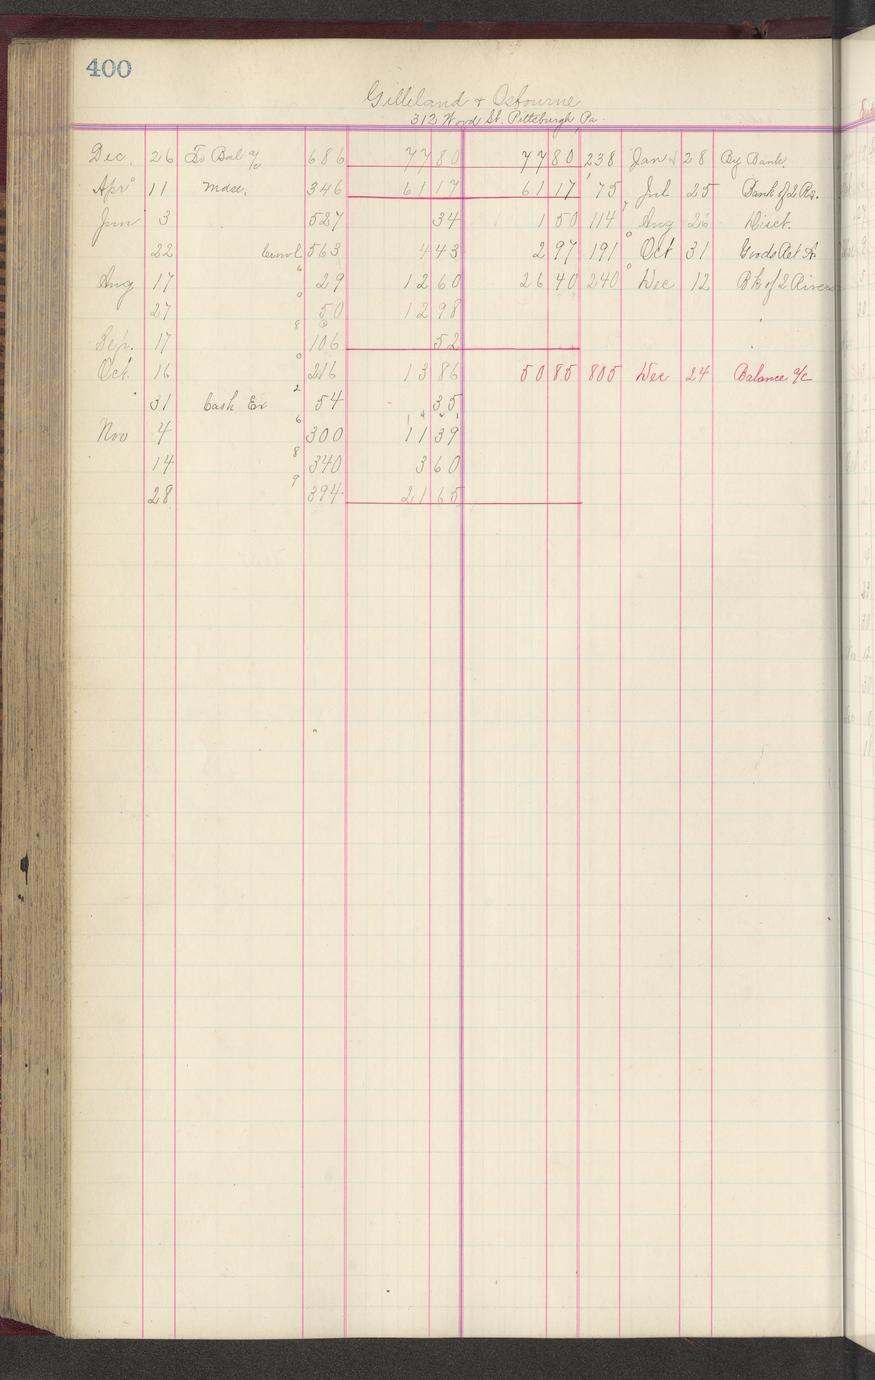 400
Gilleland & Osbourne
312 Wood St. Pittsburgh, Pa.
Dec. 26 To Bal a/c 686 77 80 77 80 238 Jan 28 By Bank
Apr 11 Mdse. 346 61 17 61 17 75 Jul 25 Bank of 2 Rs.
Jun 3 527 34 1 50 114 Aug 26 Disct.
22 563 4 43 2 97 191 Oct 31 Goods Ret'd
Aug 17 29 12 60 26 40 240 Dec 12 Bk of 2 Rivers
27 50 12 98
Sep. 17 106 52
Oct. 16 216 13 86 50 85 805 Dec 24 Balance a/c
31 Cash Ex 54 35
Nov 4 300 11 39
14 340 3 60
28 394 21 65